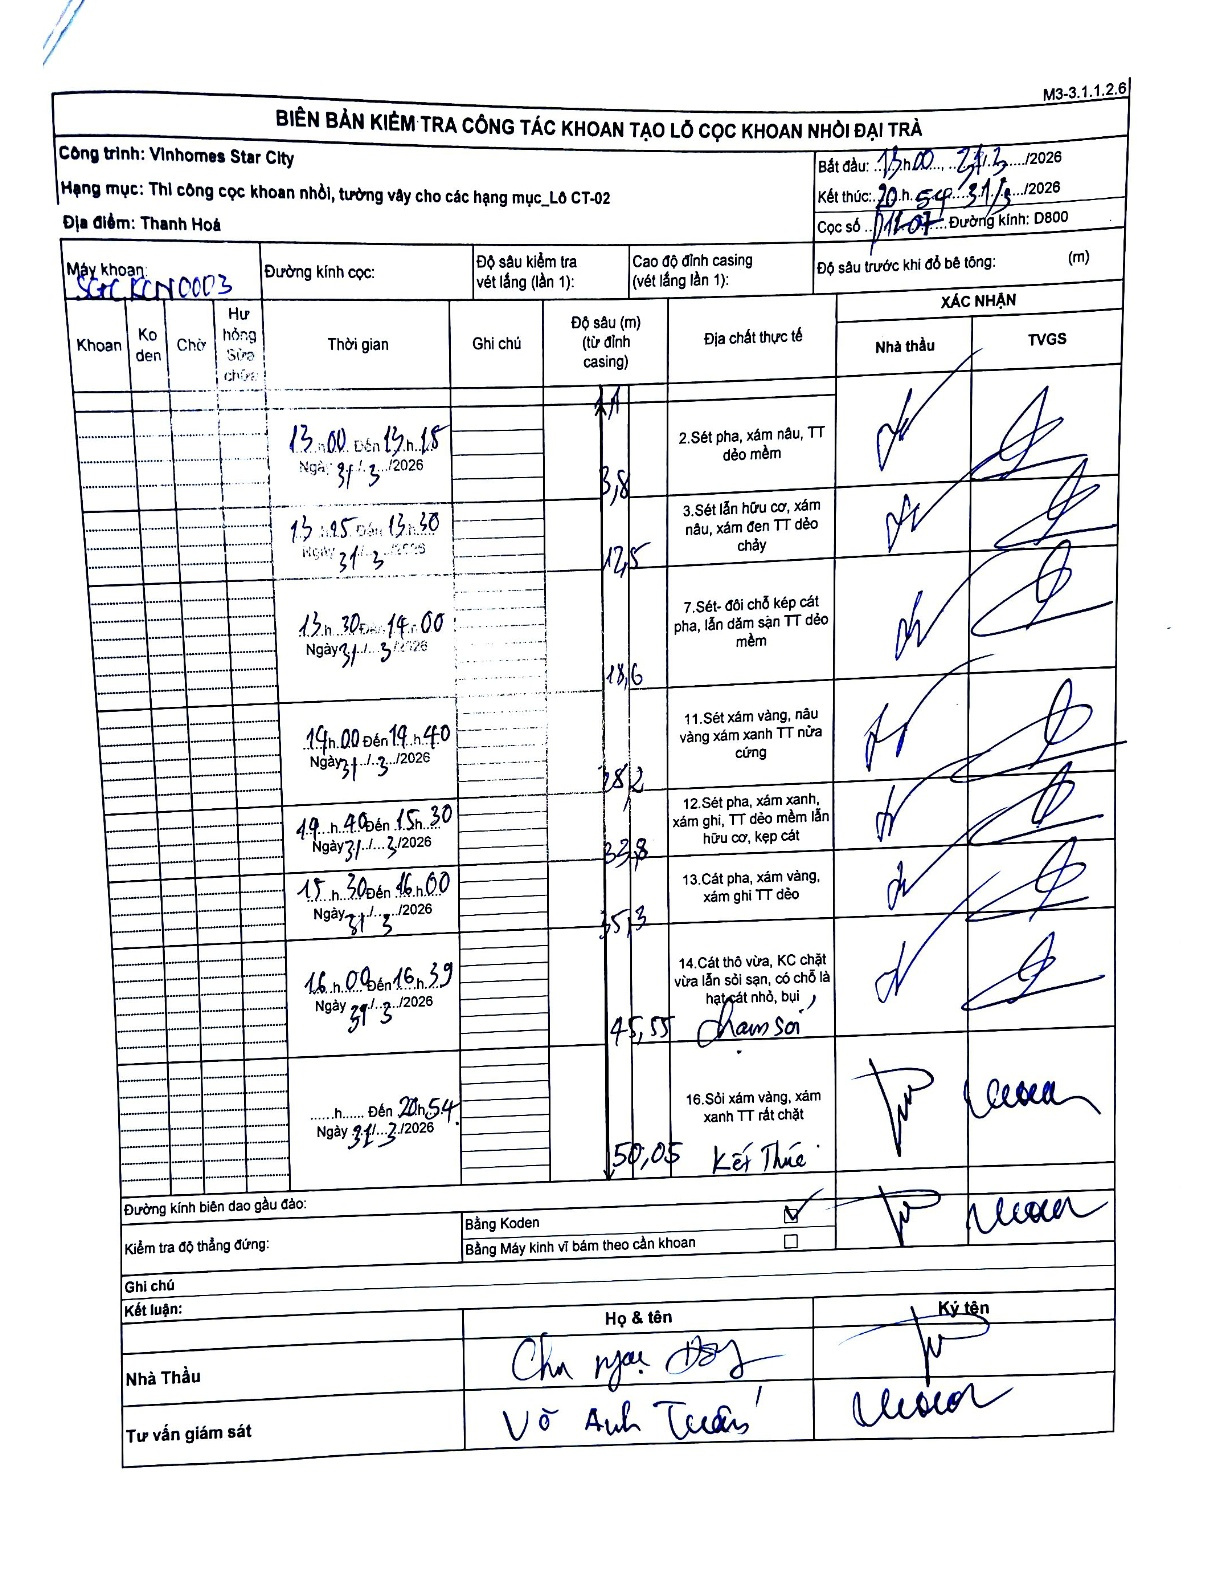 M3-3.1.1.2.6
BIÊN BẢN KIỂM TRA CÔNG TÁC KHOAN TẠO LỖ CỌC KHOAN NHỒI ĐẠI TRÀ
Công trình: Vinhomes Star City
Hạng mục: Thi công cọc khoan nhồi, tường vây cho các hạng mục_Lô CT-02
Địa điểm: Thanh Hoá
Bắt đầu: 13h00 31/3/2026
Kết thúc: 20h 54 31/3/2026
Cọc số Đường kính: D800
Máy khoan:
Đường kính cọc:
Độ sâu kiểm tra
vét lắng (lần 1):
Cao độ đỉnh casing
(vét lắng lần 1):
Độ sâu trước khi đổ bê tông: (m)
Khoan
Ko
den
Chờ
Hư
hỏng
Sửa
chữa
Thời gian
Ghi chú
Độ sâu (m)
(từ đỉnh
casing)
Địa chất thực tế
XÁC NHẬN
Nhà thầu
TVGS
1,1
13h00 Đến 13h15
Ngày 31/3/2026
2.Sét pha, xám nâu, TT
dẻo mềm
3,8
Đến 13h30
Ngày 31/3/2026
3.Sét lẫn hữu cơ, xám
nâu, xám đen TT dẻo
chảy
12,5
13h30 Đến 14h00
Ngày 31/3/2026
7.Sét- đôi chỗ kép cát
pha, lẫn dăm sạn TT dẻo
mềm
18,6
14h00 Đến 14h40
Ngày 31/3/2026
11.Sét xám vàng, nâu
vàng xám xanh TT nửa
cứng
28,2
14h40 Đến 15h30
Ngày 31/3/2026
12.Sét pha, xám xanh,
xám ghi, TT dẻo mềm lẫn
hữu cơ, kẹp cát
33,8
15h30 Đến 16h00
Ngày 31/3/2026
13.Cát pha, xám vàng,
xám ghi TT dẻo
35,3
16h00 Đến 16h39
Ngày 31/3/2026
14.Cát thô vừa, KC chặt
vừa lẫn sỏi sạn, có chỗ là
hạt cát nhỏ, bụi
45,55 chạm sỏi
......h...... Đến 20h54
Ngày 31/3/2026
16.Sỏi xám vàng, xám
xanh TT rất chặt
50,05 Kết Thúc
Đường kính biên dao gầu đào:
Kiểm tra độ thẳng đứng:
Bằng Koden
Bằng Máy kinh vĩ bám theo cần khoan
Ghi chú
Kết luận:
Họ & tên
Ký tên
Nhà Thầu
Chu Ngọc
Tư vấn giám sát
Võ Anh Tuấn